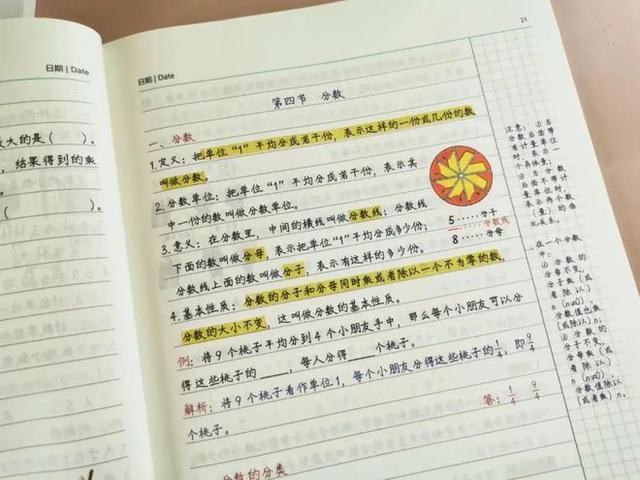 日期 | Date
大的是（ ）。
，结果得到的乘
（ ）。
21
日期 | Date
第四节 分数
一、分数
1.定义：把单位“1”平均分成若干份，表示这样的一份或几份的数
叫做分数。
2.分数单位：把单位“1”平均分成若干份，表示其
中一份的数叫做分数单位。
3.意义：在分数里，中间的横线叫做分数线；分数线
下面的数叫做分母，表示把单位“1”平均分成多少份；
分数线上面的数叫做分子，表示有这样的多少份。
5……分子
……分数线
8……分母
4.基本性质：分数的分子和分母同时乘或者除以一个不为零的数，
分数的大小不变，这叫做分数的基本性质。
例：将9个桃子平均分到4个小朋友手中，那么每个小朋友可以分
得这些桃子的____，每人分得____个桃子。
解析：将9个桃子看作单位1，每个小朋友分得这些桃子的1/4，即9/4
个桃子。
答：1/4 9/4
分数的分类
注意：①当
分数后面带
有计量单位
时，表示一
个具体量；
②当分数
后面不带计
量单位时，
表示两个数
(量)的倍
比关系。
在一个分数
中，
①分数的
分母不变，
分子乘(或
者除以)n
(n≠0)，
分数值也乘
(或除以)n；
②分数的
分子不变，
分母乘(或
者除以)n
(n≠0)，
分数值除以
(或者乘)n。